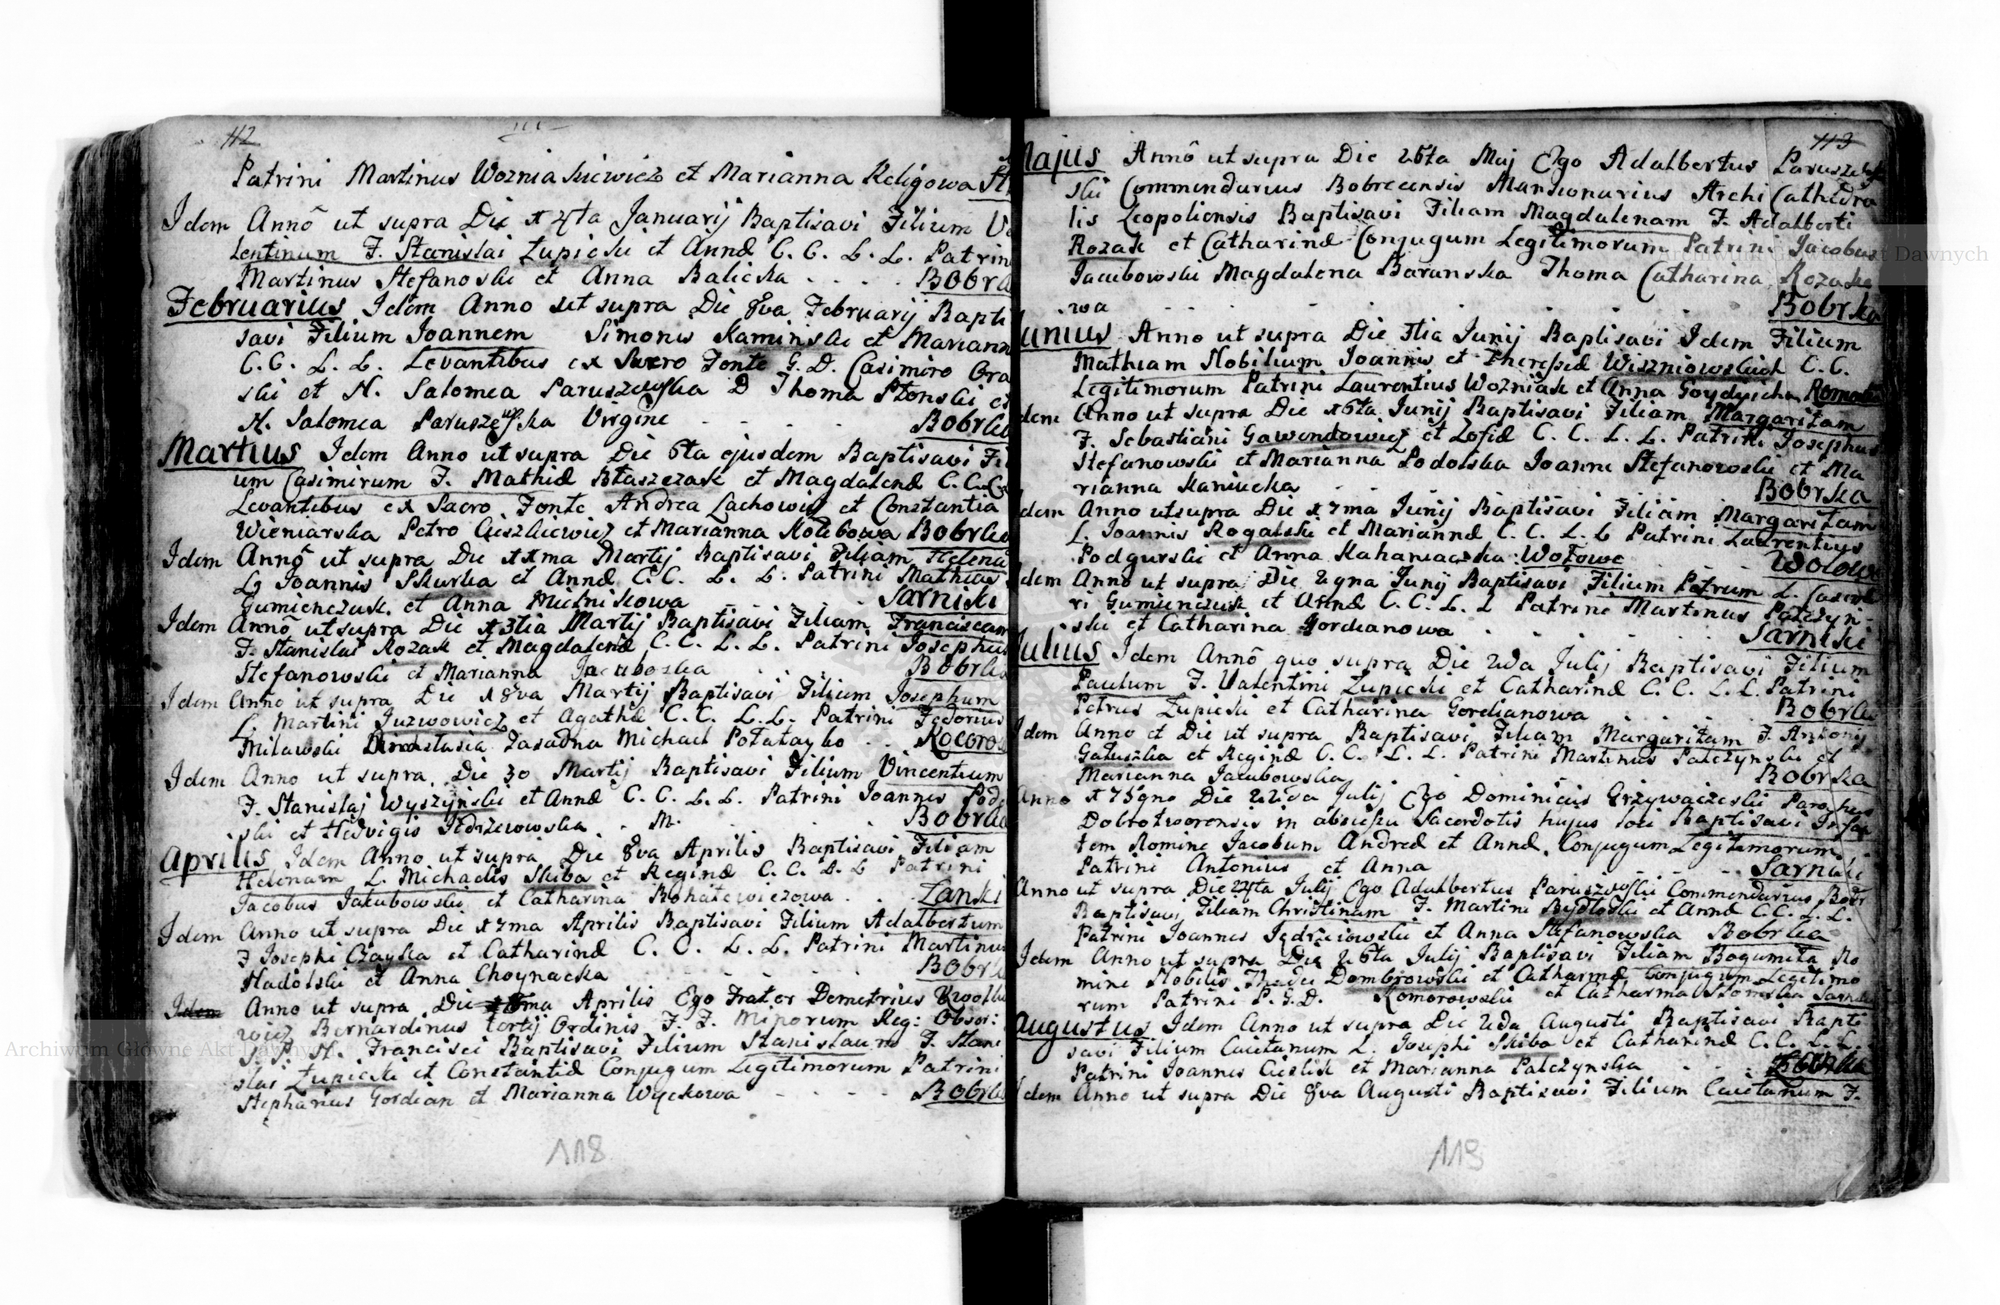 112
Patrini Martinus Wozniakiewicz et Marianna Religowa
Idem Annô ut supra Die 14ta Januarij Baptisavi Filium
lentinum F. Stanislai Łupicki et Annæ C. C. L. L. Patrini
Martinus Stefanoski et Anna Balicka . . . . Bobrka
Februarius Idem Anno ut supra Die 8va Februarij Bapti
savi Filium Joannem Simonis Kaminski et Mariann
C. C. L. L. Levantibus ex Sacro Fonte G. D. Casimiro
ski et N. Salomea Paruszewska D Thoma Płonski et
N. Salomea Paruszewska Virgine . . . Bobrka
Martius Idem Anno ut supra Die 6ta ejusdem Baptisavi Fi
um Casimirum F. Mathiæ Błaszczak et Magdalenæ C. C.
Levantibus ex Sacro Fonte Andrea Lachowicz et Constantia
Wieniarska Petro et Marianna Bobrka
Idem Annô ut supra Die 11ma Martij Baptisavi Filiam Helenam
L. Joannis Skurka et Annæ C. C. L. L. Patrini Mathias
Gumienczuk et Anna Mielnikowa Sarniki
Idem Annô ut supra Die 13tia Martij Baptisavi Filiam Franciscam
F. Stanislai Kozak et Magdalenæ C. C. L. L. Patrini Josephus
Stefanowski et Marianna Jacuboska . . . Bobrka
Idem Anno ut supra Die 18va Martij Baptisavi Filium Josephum
L. Martini Juzwowicz et Agathæ C. C. L. L. Patrini Fedorius
Milawski Zasadna Michael . .
Idem Anno ut supra Die 30 Martij Baptisavi Filium Vincentium
F. Stanislaj Wyszynski et Annæ C. C. L. L. Patrini Joannes
ski et Hedvigis Jedrzeiowska . M. . . . Bobrka
Aprilis Idem Anno ut supra Die 8va Aprilis Baptisavi Filiam
Helenam L. Michaelis Skiba et Reginæ C. C. L. L Patrini
Jacobus Jakubowski et Catharina Rohatewiczowa . . Łanki
Idem Anno ut supra Die 17ma Aprilis Baptisavi Filium Adalbertum
F Josephi Czayka et Catharinæ C. C. L. L. Patrini Martinus
Nadolski et Anna Choynacka . . . Bobrka
Idem Anno ut supra Die Aprilis Ego Frater Demetrius
wicz Bernardinus tertij Ordinis F. F. Minorum Reg: Obser:
S. P. N. Francisci Baptisavi Filium Stanislaum F. Stani
slai Łupicki et Constantiæ Conjugum Legitimorum Patrini
Stephanus Gordian et Marianna Wyckowa . . . . Bobrka
118
113
Majus Annô ut supra Die 26ta Maj Ego Adalbertus Paruszew
ski Commendarius Bobrecensis Mansionarius Archi Cathedra
lis Leopoliensis Baptisavi Filiam Magdalenam F. Adalberti
Kozak et Catharinæ Conjugum Legitimorum Patrini Jacobus
Jacubowski Magdalena Baranska Thoma Catharina Kozako
wa . . . . . Bobrka
Junius Anno ut supra Die 3tia Junij Baptisavi Idem Filium
Mathiam Nobilium Joannis et Theresæ Wiszniowskich C. C.
Legitimorum Patrini Laurentius Wozniak et Anna
Idem Anno ut supra Die 16ta Junij Baptisavi Filiam Margaritam
F. Sebastiani Gawendowicz et Zofiæ C. C. L. L. Patrini Josephus
Stefanowski et Marianna Podolska Joanne Stefanowski et Ma
rianna Kaniucka . . . Bobrka
Idem Anno ut supra Die 17ma Junij Baptisavi Filiam Margaritam
L. Joannis Rogalski et Mariannæ C. C. L. L Patrini Laurentius
Podgurski et Anna Wołowe Wołowe
Idem Anno ut supra Die 29na Junij Baptisavi Filium Petrum L. Casimi
ri Gumienczuk et Annæ C. C. L. L Patrini Martinus Patczyn-
ski et Catharina Gordianowa . . . Sarniki
Julius Idem Annô quo supra Die 2da Julij Baptisavi Filium
Paulum F. Valentini Łupicki et Catharinæ C. C. L. L. Patrini
Petrus Łupicki et Catharina Gordianowa . . Bobrka
Idem Anno et Die ut supra Baptisavi Filiam Margaritam F. Antonij
Gałuszka et Reginæ C. C. L. L. Patrini Martinus Patczynski et
Marianna Jacubowska . . . Bobrka
Anno Die 22da Julij Ego Dominicus Grzywaczeski Parochus
Dobrotworensis in absentia Sacerdotis hujus loci Baptisavi Infan
tem Nomine Jacobum Andreæ et Annæ Conjugum Legitimorum
Patrini Antonius et Anna . . . Sarniki
Anno ut supra Die 24ta Julij Ego Adalbertus Paruszewski Commendarius Bobr
Baptisavi Filiam Christinam F. Martini Bydłoski et Annæ C. C. L. L.
Patrini Joannes Jędrzeiowski et Anna Stefanowska Bobrka
Idem Anno ut supra Die 26ta Julij Baptisavi Filiam Bogumiła No
mine Nobilis Thadei Dombrowski et Catharinæ Conjugum Legitimo
rum Patrini P. G. D. Komorowski et Catharina Słomska Sarniki
Augustus Idem Anno ut supra Die 2da Augusti Baptisavi Bapti
savi Filium Caietanum L. Josephi Skiba et Catharinæ C. C. L. L.
Patrini Joannes Cieslik et Marianna Patczynska . . .
Idem Anno ut supra Die 8va Augusti Baptisavi Filium Caietanum F.
119
Archiwum Główne Akt Dawnych
Archiwum Główne Akt Dawnych